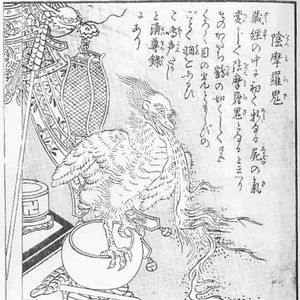 陰摩羅鬼
蔵経の中に初て新なる屍の気
変じて陰摩羅鬼となると云へり
そのかたち鶴の如くして色
くろく目の光ともしびの
ごとく羽をふるひ
て鳴声たかし
と清尊録
にあり